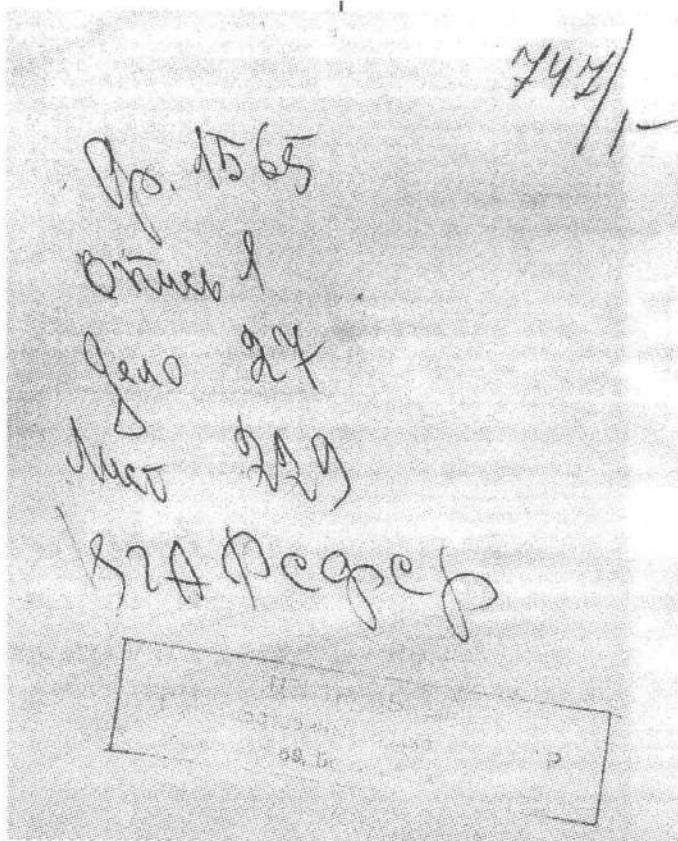 747/1-
Ф. 1565
опись 1
дело 27
лист 229
ЦГА РСФСР